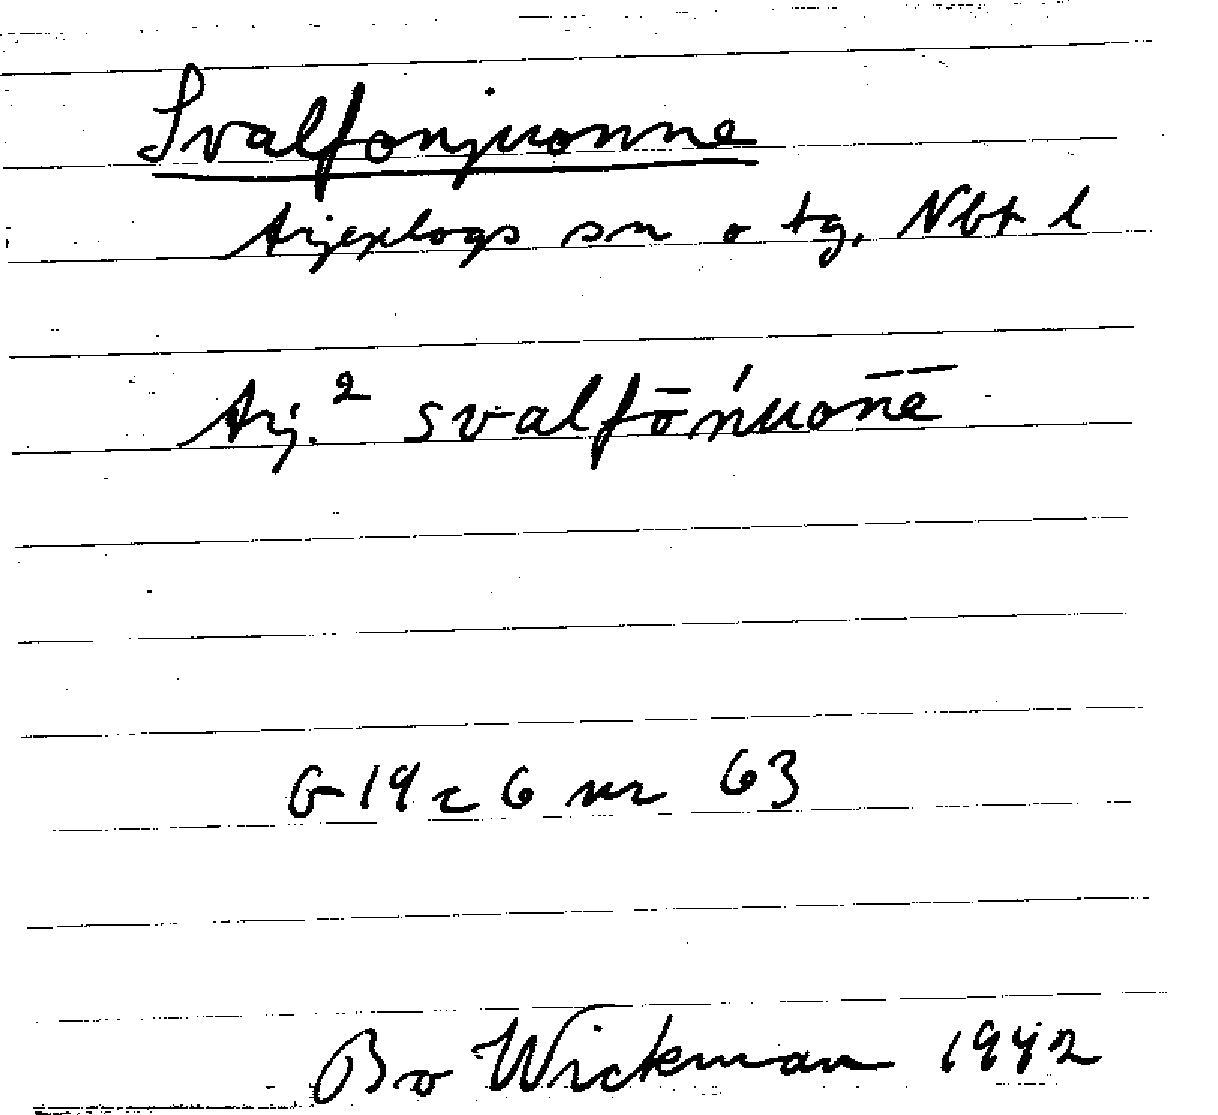 Svalfonjuonne
Arjeplogs sn o tg, Nbt l
Arj.² svalfōńuonē
G 19 c 6 nr 63
Bo Wickman 1942